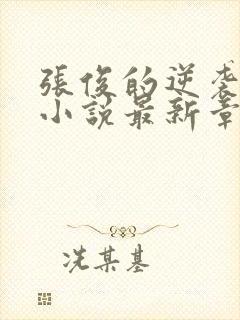 張俊的逆袭
小說最新章
冼某基